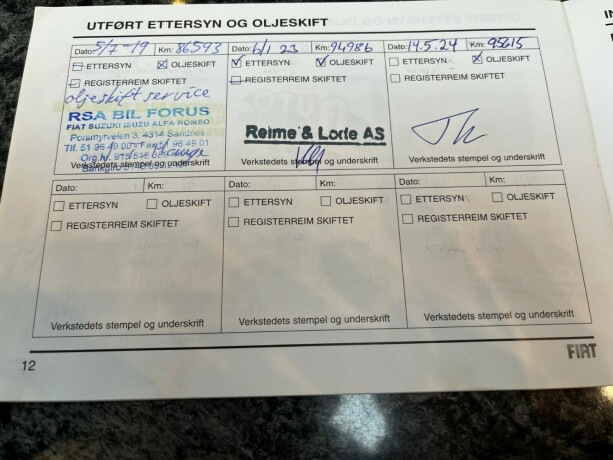 UTFØRT ETTERSYN OG OLJESKIFT
Dato: 5/7-19 Km: 86593
ETTERSYN OLJESKIFT
REGISTERREIM SKIFTET
oljeskift service
RSA BIL FORUS
FIAT SUZUKI ISUZU ALFA ROMEO
4314 Sandnes
Tlf. 51 96 49 00 - Fax 51 96 49 01
Verkstedets stempel og underskrift
Dato: 6/1 23 Km: 94986
ETTERSYN OLJESKIFT
REGISTERREIM SKIFTET
Reime & Lode AS
Verkstedets stempel og underskrift
Dato: 14.5.24 Km: 95615
ETTERSYN OLJESKIFT
REGISTERREIM SKIFTET
Verkstedets stempel og underskrift
Dato: Km:
ETTERSYN OLJESKIFT
REGISTERREIM SKIFTET
Verkstedets stempel og underskrift
Dato: Km:
ETTERSYN OLJESKIFT
REGISTERREIM SKIFTET
Verkstedets stempel og underskrift
Dato: Km:
ETTERSYN OLJESKIFT
REGISTERREIM SKIFTET
Verkstedets stempel og underskrift
12
FIAT